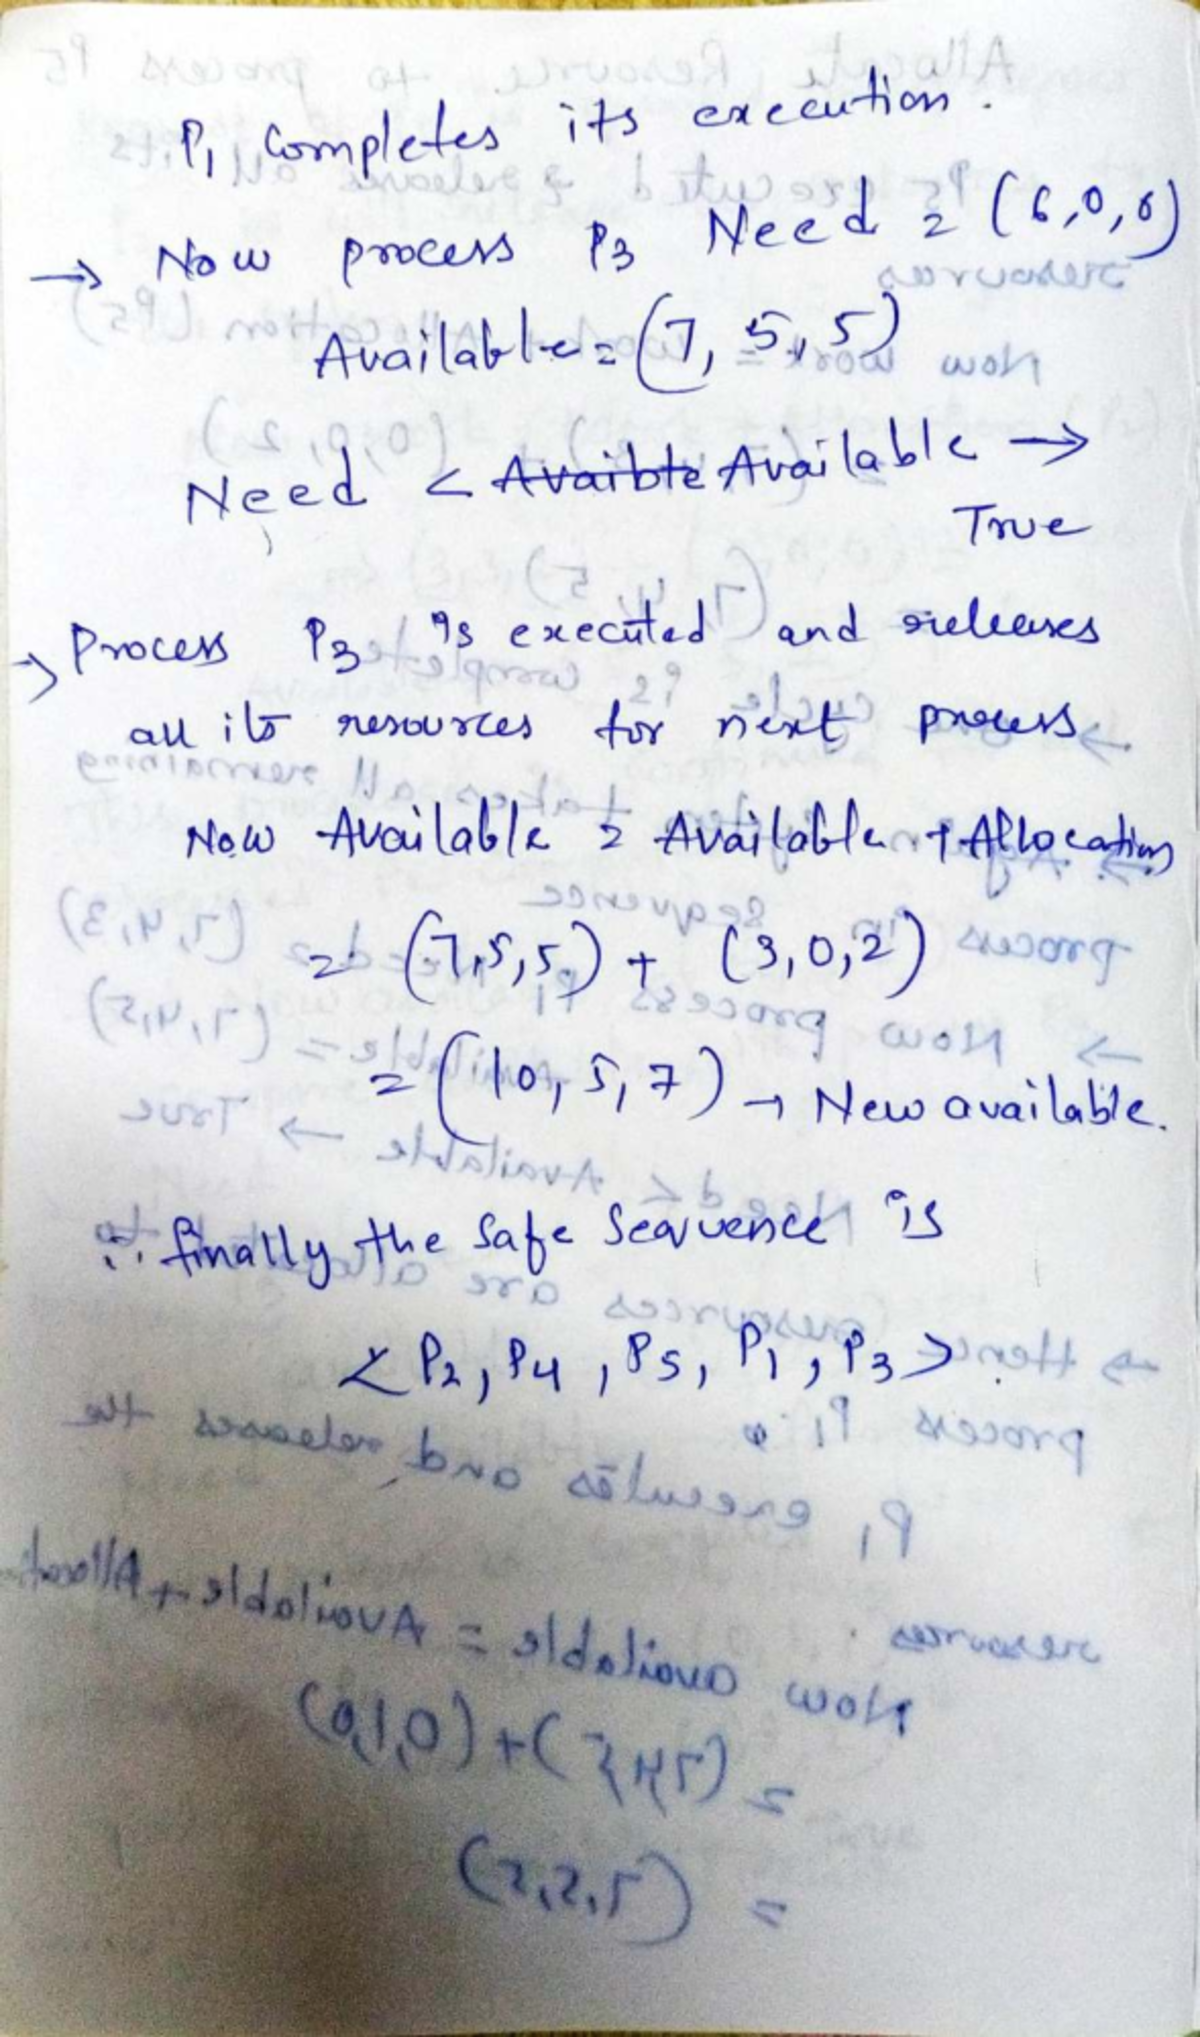 P1 Completes its execution.
→ Now process P3 Need = (6,0,0)
Available = (7, 5, 5)
Need < Avaibte Available →
True
→ Process P3 is executed and releases
all its resources for next process
Now Available = Available + Allocation
= (7,5,5) + (3,0,2)
= (10, 5, 7) → New available.
∴ finally the Safe Sequence is
< P2, P4, P5, P1, P3 >